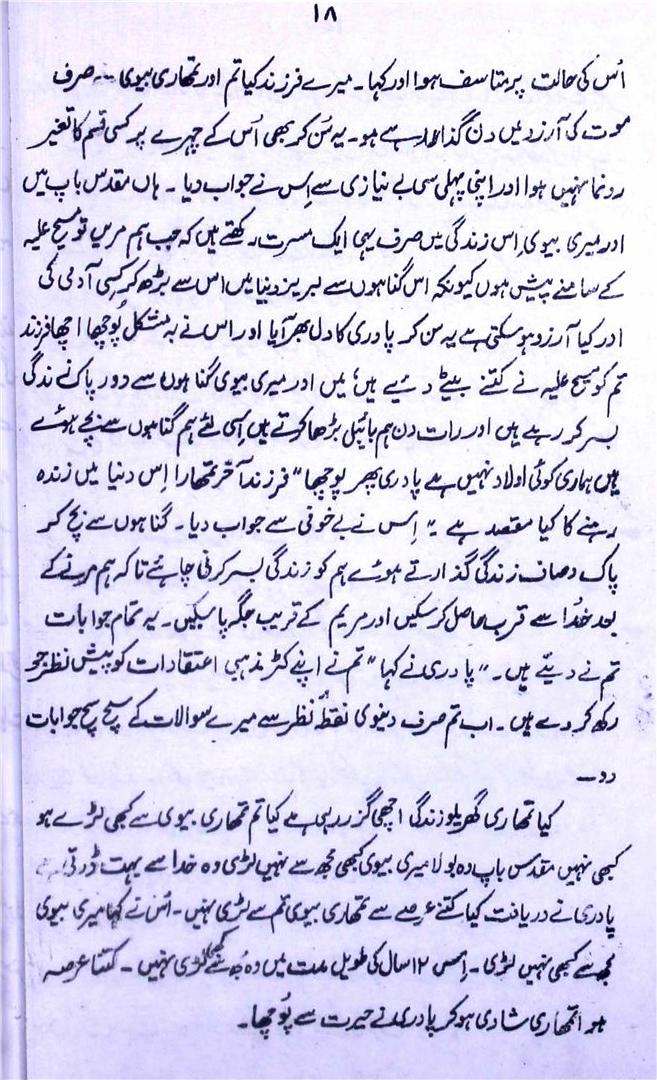 ۱۸
اُس کی حالت پر متاسف ہوا اور کہا۔ میرے فرزند کیا تم اور تمھاری بیوی ۔۔ صرف
موت کی آرزو میں دن گذار رہے ہو۔ یہ سُن کر بھی اُس کے چہرے پر کسی قسم کا تغیر
رونما نہیں ہوا اور اپنی پہلی سی بے نیازی سے اِس نے جواب دیا ۔ ہاں مقدس باپ میں
اور میری بیوی اِس زندگی میں صرف یہی ایک مسرت رکھتے ہیں کہ جب ہم مریں تو مسیح علیہ
کے سامنے پیش ہوں کیونکہ اس گناہوں سے لبریز دنیا میں اس سے بڑھ کر کسی آدمی کی
اور کیا آرزو ہو سکتی ہے یہ سن کر پادری کا دل بھر آیا اور اس نے بہ مشکل پُوچھا اچھا فرزند
تم کو مسیح علیہ نے کتنے بیٹے دیے ہیں؛ میں اور میری بیوی گناہوں سے دور پاک زندگی
بسر کر رہے ہیں اور رات دن ہم بائیبل پڑھا کرتے ہیں اِسی لئے ہم گناہوں سے بچے ہوئے
ہیں ہماری کوئی اولاد نہیں ہے پادری پھر پوچھا "فرزند آخر تمھارا اِس دنیا میں زندہ
رہنے کا کیا مقصد ہے ۔" اِس نے بے خوفی سے جواب دیا۔ گناہوں سے بچ کر
پاک و صاف زندگی گذارتے ہوئے ہم کو زندگی بسر کرنی چاہئے تاکہ ہم مرنے کے
بعد خدا سے قرب حاصل کر سکیں اور مریم کے قریب جگہ پا سکیں۔ یہ تمام جوابات
تم نے دیئے ہیں۔" پادری نے کہا "تم نے اپنے کٹر مذہبی اعتقادات کو پیش نظر جو
رکھ کر دے ہیں۔ اب تم صرف دنیوی نقطۂ نظر سے میرے سوالات کے سچ سچ جوابات
دو ۔
کیا تمھاری گھریلو زندگی اچھی گزر رہی ہے کیا تم تمھاری بیوی سے کبھی لڑے ہو
کبھی نہیں مقدس باپ وہ بولا میری بیوی کبھی مجھ سے نہیں لڑی وہ خدا سے بہت ڈرتی ہے
پادری نے دریافت کیا کتنے عرصے سے تمھاری بیوی تم سے لڑی نہیں۔ اُس نے کہا میری بیوی
مجھ سے کبھی نہیں لڑی۔ اِس ۱۲ سال کی طویل مدت میں وہ مجھ سے کبھی لڑی نہیں۔ کتنا عرصہ
ہوا تمھاری شادی ہو کر پادری نے حیرت سے پُوچھا۔